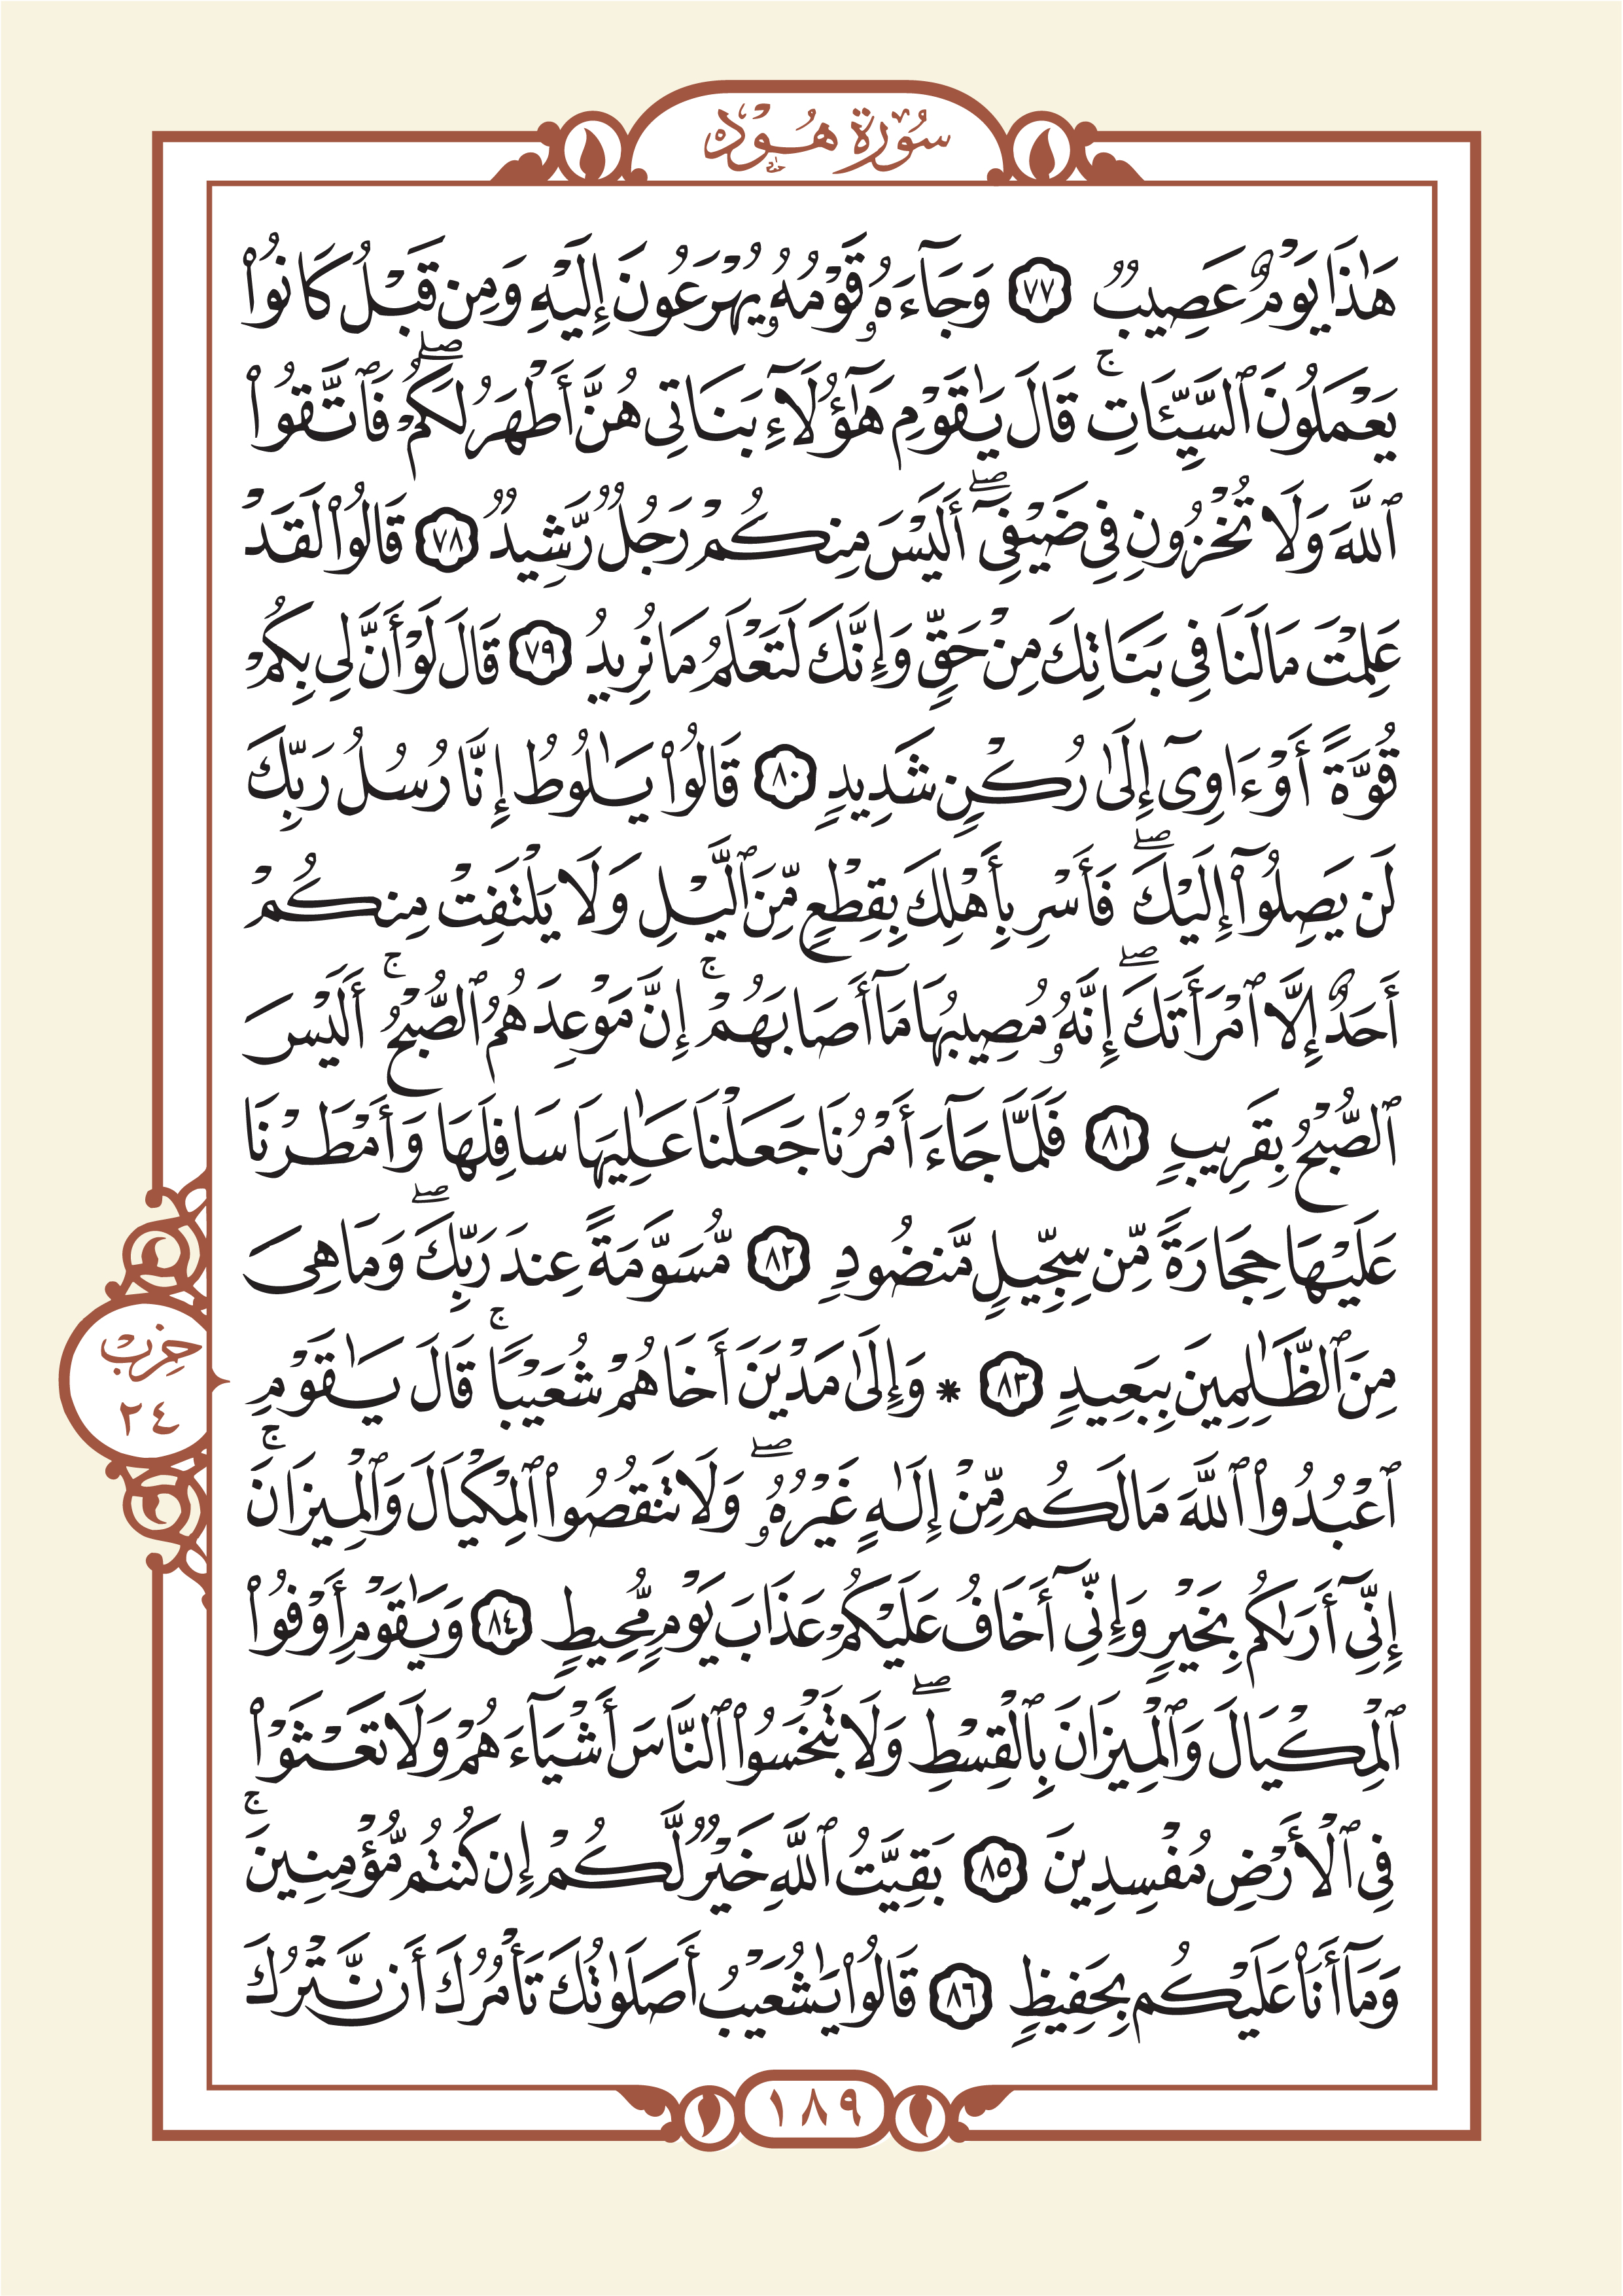 سُورَةُ هُودٍ
هَٰذَا يَوْمٌ عَصِيبٌ ٧٧ وَجَآءَهُۥ قَوْمُهُۥ يُهْرَعُونَ إِلَيْهِ وَمِن قَبْلُ كَانُوا۟
يَعْمَلُونَ ٱلسَّيِّـَٔاتِ ۚ قَالَ يَٰقَوْمِ هَٰٓؤُلَآءِ بَنَاتِى هُنَّ أَطْهَرُ لَكُمْ ۖ فَٱتَّقُوا۟
ٱللَّهَ وَلَا تُخْزُونِ فِى ضَيْفِىٓ ۖ أَلَيْسَ مِنكُمْ رَجُلٌ رَّشِيدٌ ٧٨ قَالُوا۟ لَقَدْ
عَلِمْتَ مَا لَنَا فِى بَنَاتِكَ مِنْ حَقٍّ وَإِنَّكَ لَتَعْلَمُ مَا نُرِيدُ ٧٩ قَالَ لَوْ أَنَّ لِى بِكُمْ
قُوَّةً أَوْ ءَاوِىٓ إِلَىٰ رُكْنٍ شَدِيدٍ ٨٠ قَالُوا۟ يَٰلُوطُ إِنَّا رُسُلُ رَبِّكَ
لَن يَصِلُوٓا۟ إِلَيْكَ ۖ فَأَسْرِ بِأَهْلِكَ بِقِطْعٍ مِّنَ ٱلَّيْلِ وَلَا يَلْتَفِتْ مِنكُمْ
أَحَدٌ إِلَّا ٱمْرَأَتَكَ ۖ إِنَّهُۥ مُصِيبُهَا مَآ أَصَابَهُمْ ۚ إِنَّ مَوْعِدَهُمُ ٱلصُّبْحُ ۚ أَلَيْسَ
ٱلصُّبْحُ بِقَرِيبٍ ٨١ فَلَمَّا جَآءَ أَمْرُنَا جَعَلْنَا عَٰلِيَهَا سَافِلَهَا وَأَمْطَرْنَا
عَلَيْهَا حِجَارَةً مِّن سِجِّيلٍ مَّنضُودٍ ٨٢ مُّسَوَّمَةً عِندَ رَبِّكَ ۖ وَمَا هِىَ
مِنَ ٱلظَّٰلِمِينَ بِبَعِيدٍ ٨٣ * وَإِلَىٰ مَدْيَنَ أَخَاهُمْ شُعَيْبًا ۚ قَالَ يَٰقَوْمِ
ٱعْبُدُوا۟ ٱللَّهَ مَا لَكُم مِّنْ إِلَٰهٍ غَيْرُهُۥ ۖ وَلَا تَنقُصُوا۟ ٱلْمِكْيَالَ وَٱلْمِيزَانَ ۚ
إِنِّىٓ أَرَىٰكُم بِخَيْرٍ وَإِنِّىٓ أَخَافُ عَلَيْكُمْ عَذَابَ يَوْمٍ مُّحِيطٍ ٨٤ وَيَٰقَوْمِ أَوْفُوا۟
ٱلْمِكْيَالَ وَٱلْمِيزَانَ بِٱلْقِسْطِ ۖ وَلَا تَبْخَسُوا۟ ٱلنَّاسَ أَشْيَآءَهُمْ وَلَا تَعْثَوْا۟
فِى ٱلْأَرْضِ مُفْسِدِينَ ٨٥ بَقِيَّتُ ٱللَّهِ خَيْرٌ لَّكُمْ إِن كُنتُم مُّؤْمِنِينَ ۚ
وَمَآ أَنَا۠ عَلَيْكُم بِحَفِيظٍ ٨٦ قَالُوا۟ يَٰشُعَيْبُ أَصَلَوٰتُكَ تَأْمُرُكَ أَن نَّتْرُكَ
حِزْب
٢٤
١٨٩